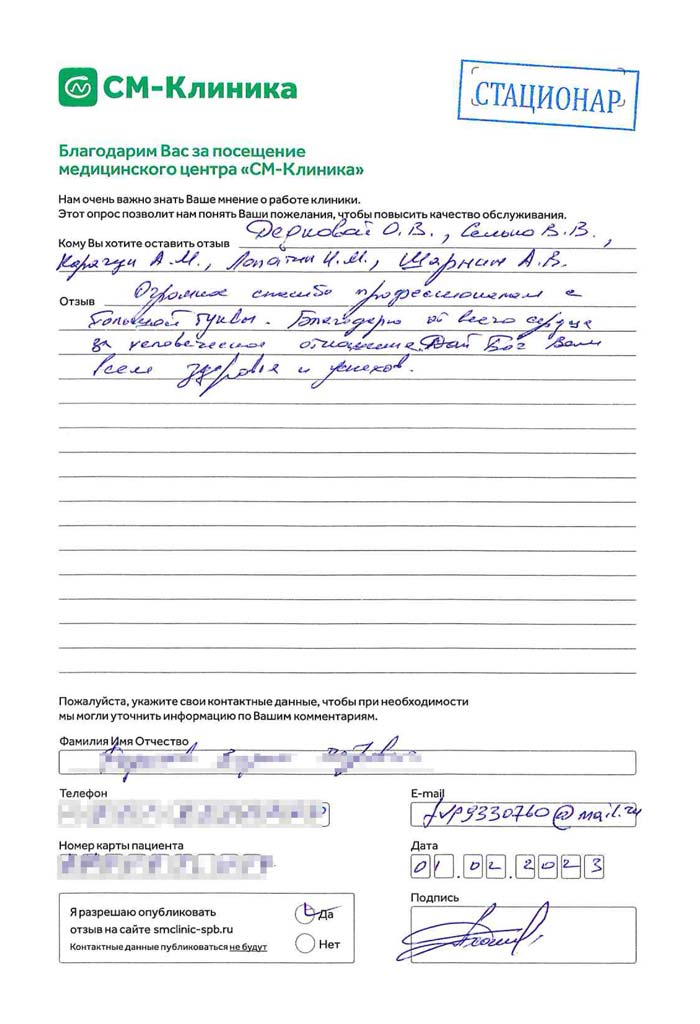 СМ-Клиника
СТАЦИОНАР
Благодарим Вас за посещение
медицинского центра «СМ-Клиника»
Нам очень важно знать Ваше мнение о работе клиники.
Этот опрос позволит нам понять Ваши пожелания, чтобы повысить качество обслуживания.
Кому Вы хотите оставить отзыв Дерковой О.В., Селько В.В.,
Карачун А.М., Лопатин И.М., Шарнин А.В.
Отзыв Огромное спасибо профессионалам с
большой буквы. Благодарю от всего сердца
за человеческое отношение. Дай Бог Вам
всем здоровья и успехов.
Пожалуйста, укажите свои контактные данные, чтобы при необходимости
мы могли уточнить информацию по Вашим комментариям.
Фамилия Имя Отчество
Телефон
E-mail
@mail.ru
Номер карты пациента
Дата
01.02.2023
Я разрешаю опубликовать
отзыв на сайте smclinic-spb.ru
Контактные данные публиковаться не будут
Да
Нет
Подпись